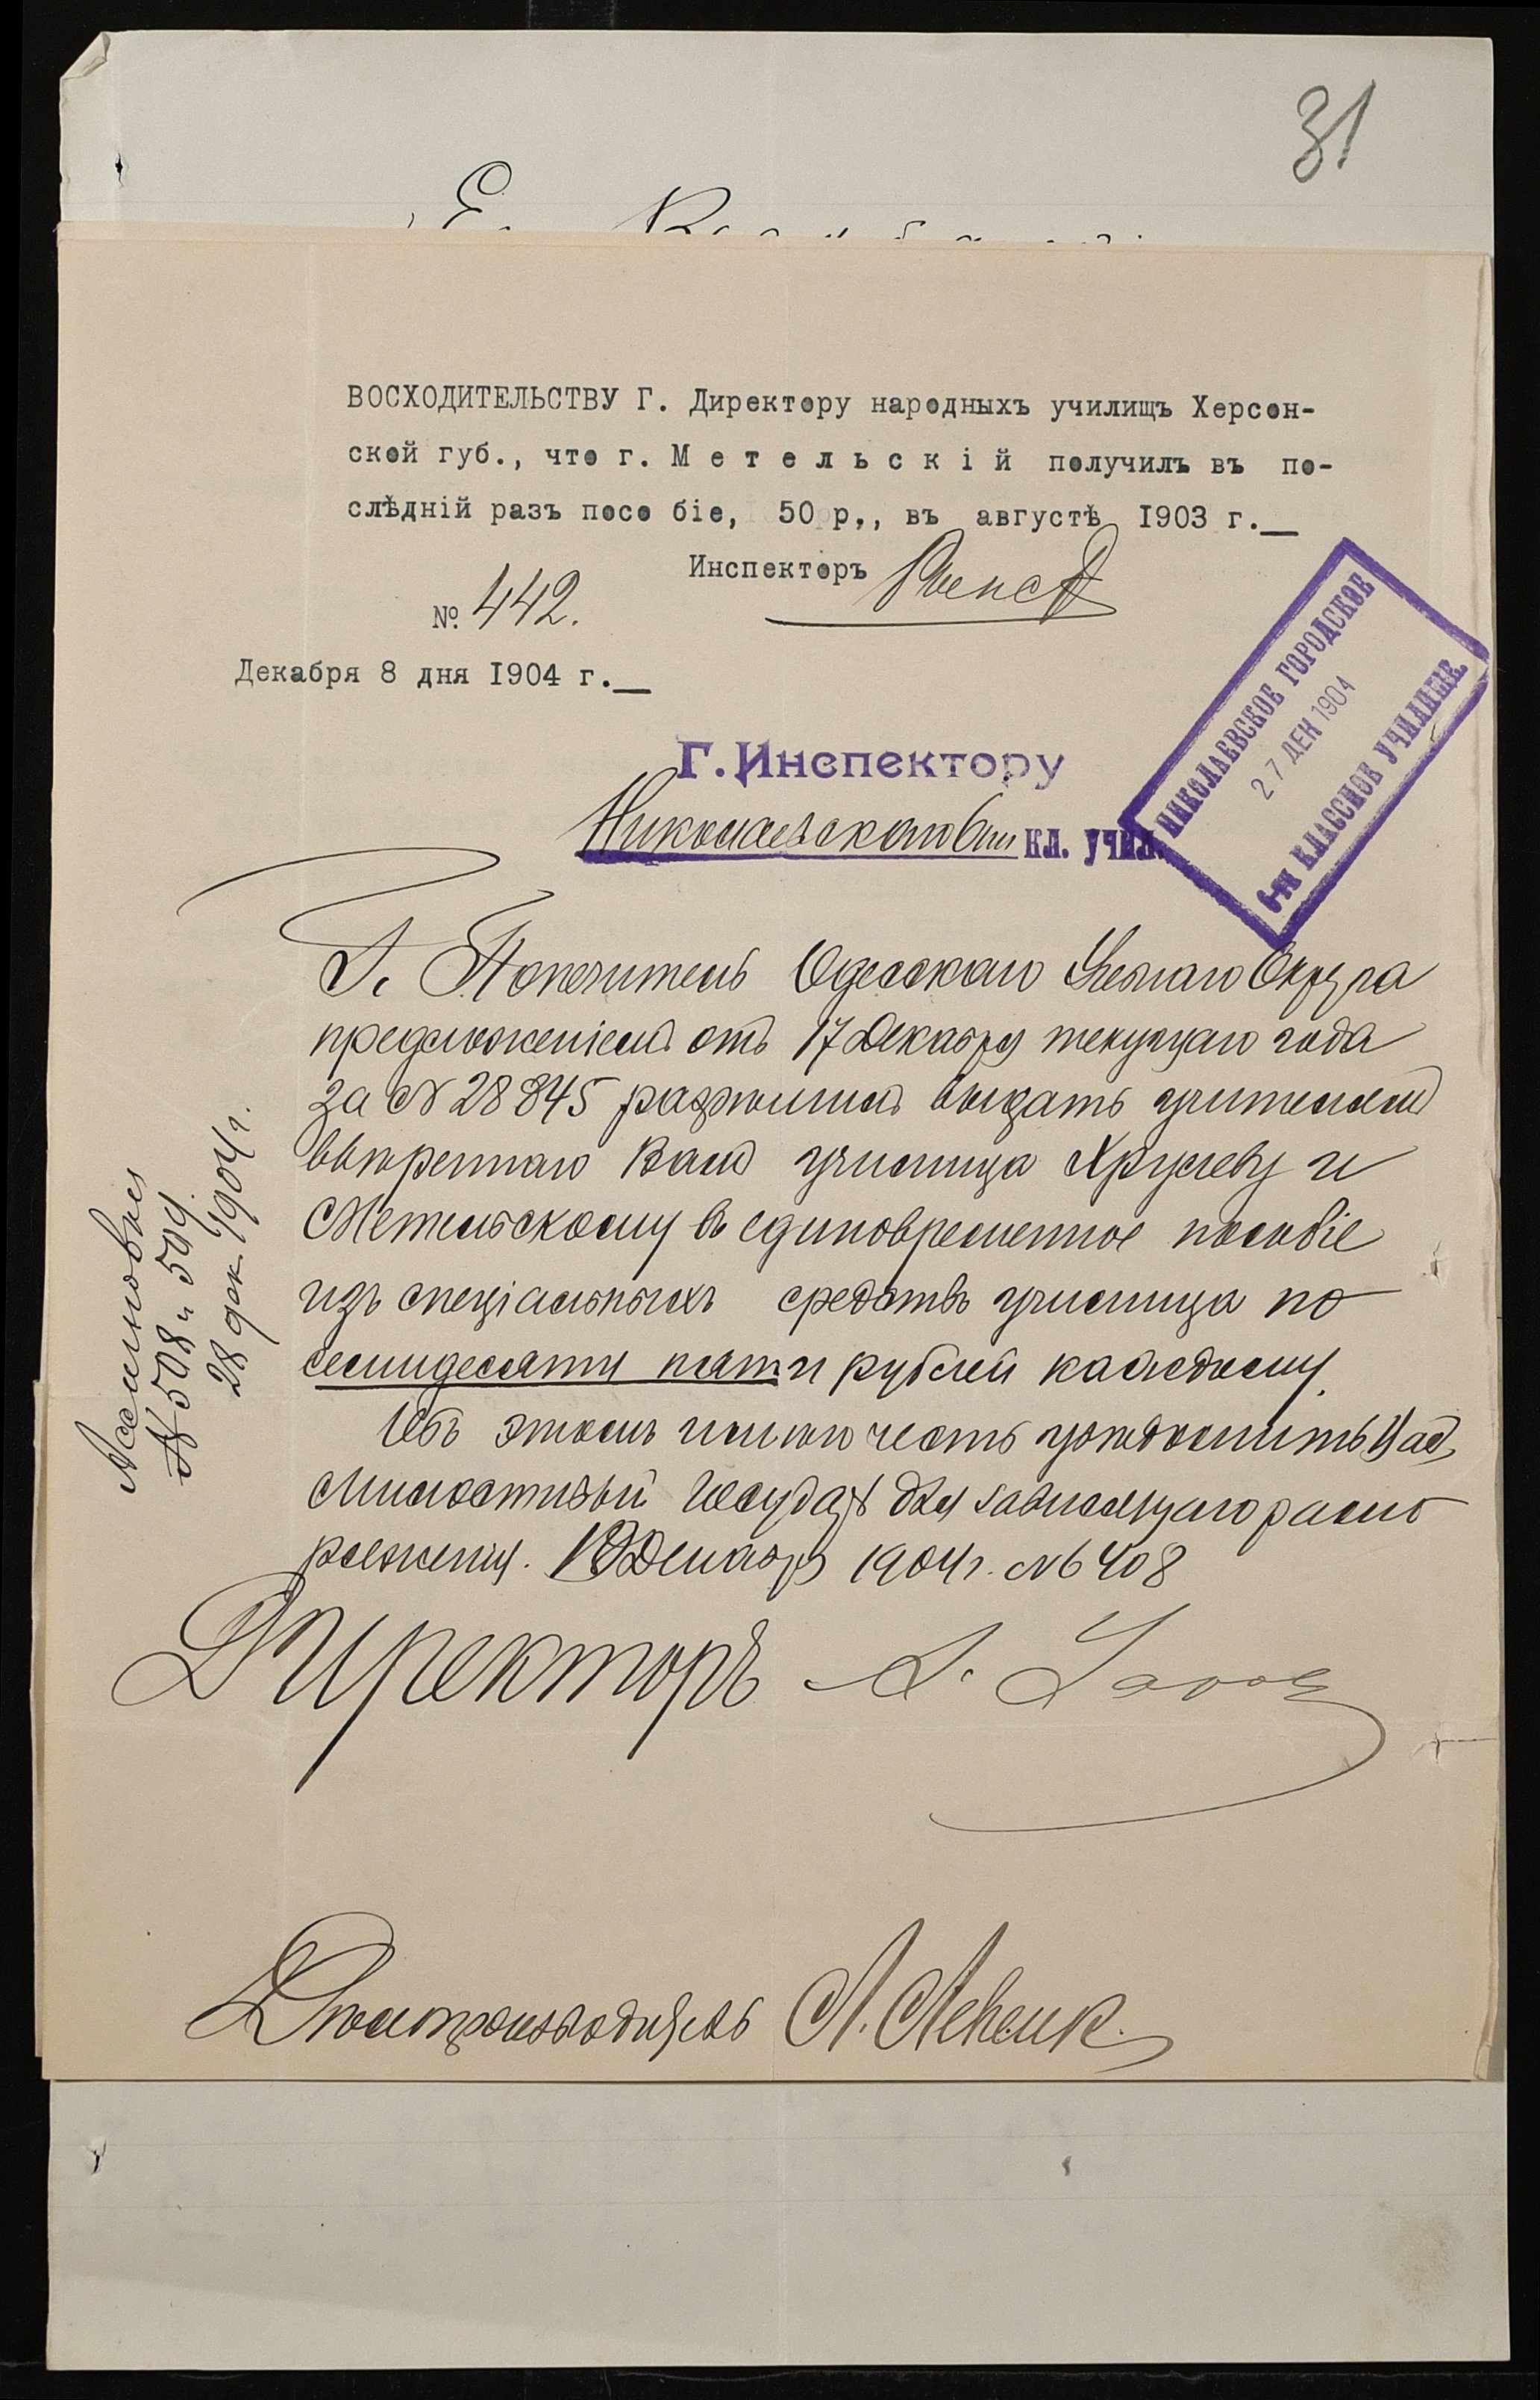 31
ВОСХОДИТЕЛЬСТВУ Г. Директору народныхъ училищъ Херсон-
ской губ., что г. Метельскій получилъ въ по-
слѣдній разъ посо біе, 50 р,, въ августѣ 1903 г.
Инспекторъ
№ 442.
Декабря 8 дня 1904 г.
НИКОЛАЕВСКОЕ ГОРОДСКОЕ
27 ДЕК 1904
6-ти КЛАССНОЕ УЧИЛИЩЕ
Г. Инспектору
Николаевскаго 6ти кл. учил.
Г. Попечитель Одесскаго Учебнаго Округа
предложеніемъ отъ 17 Декабря текущаго года
за № 28845 разрѣшилъ выдать учителямъ
ввѣреннаго Вамъ училища Хрулеву и
Метельскому въ единовременное пособіе
изъ спеціальныхъ средствъ училища по
семидесяти пяти рублей каждому.
Объ этомъ имѣю честь увѣдомить Васъ,
Милостивый Государь для зависящаго распо
ряженія. Декабря 1904 г. № 6408
Ассигновка
№ 508 и 509.
28 дек. 1904 г.
Директоръ
Дѣлопроизводитель